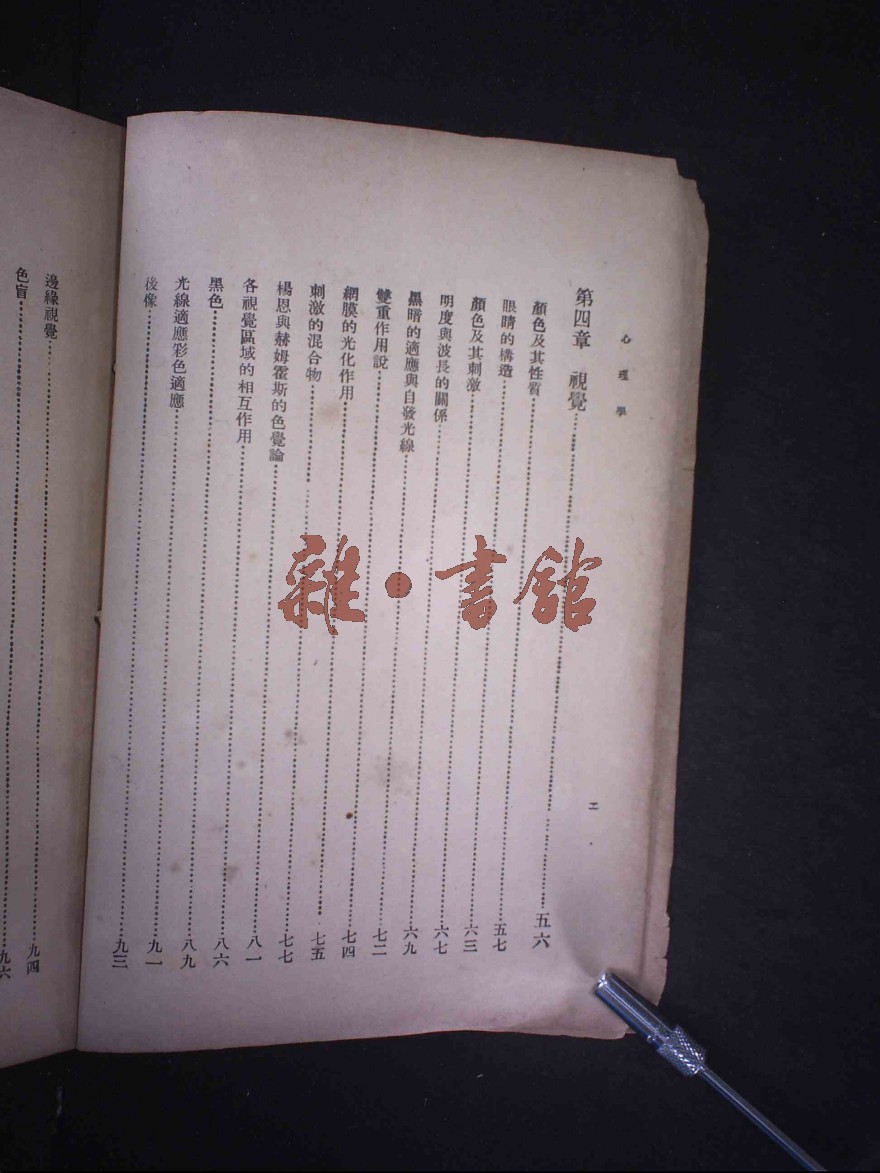 心理學
二
第四章 視覺……五六
顏色及其性質……五七
眼睛的構造……六三
顏色及其刺激……六七
明度與波長的關係……六九
黑暗的適應與自發光線……七二
雙重作用說……七四
網膜的光化作用……七五
刺激的混合物……七七
楊恩與赫姆霍斯的色覺論……八一
各視覺區域的相互作用……八六
黑色……八九
光線適應彩色適應……九一
後像……九三
邊緣視覺……九四
色盲……九六
雜·書館